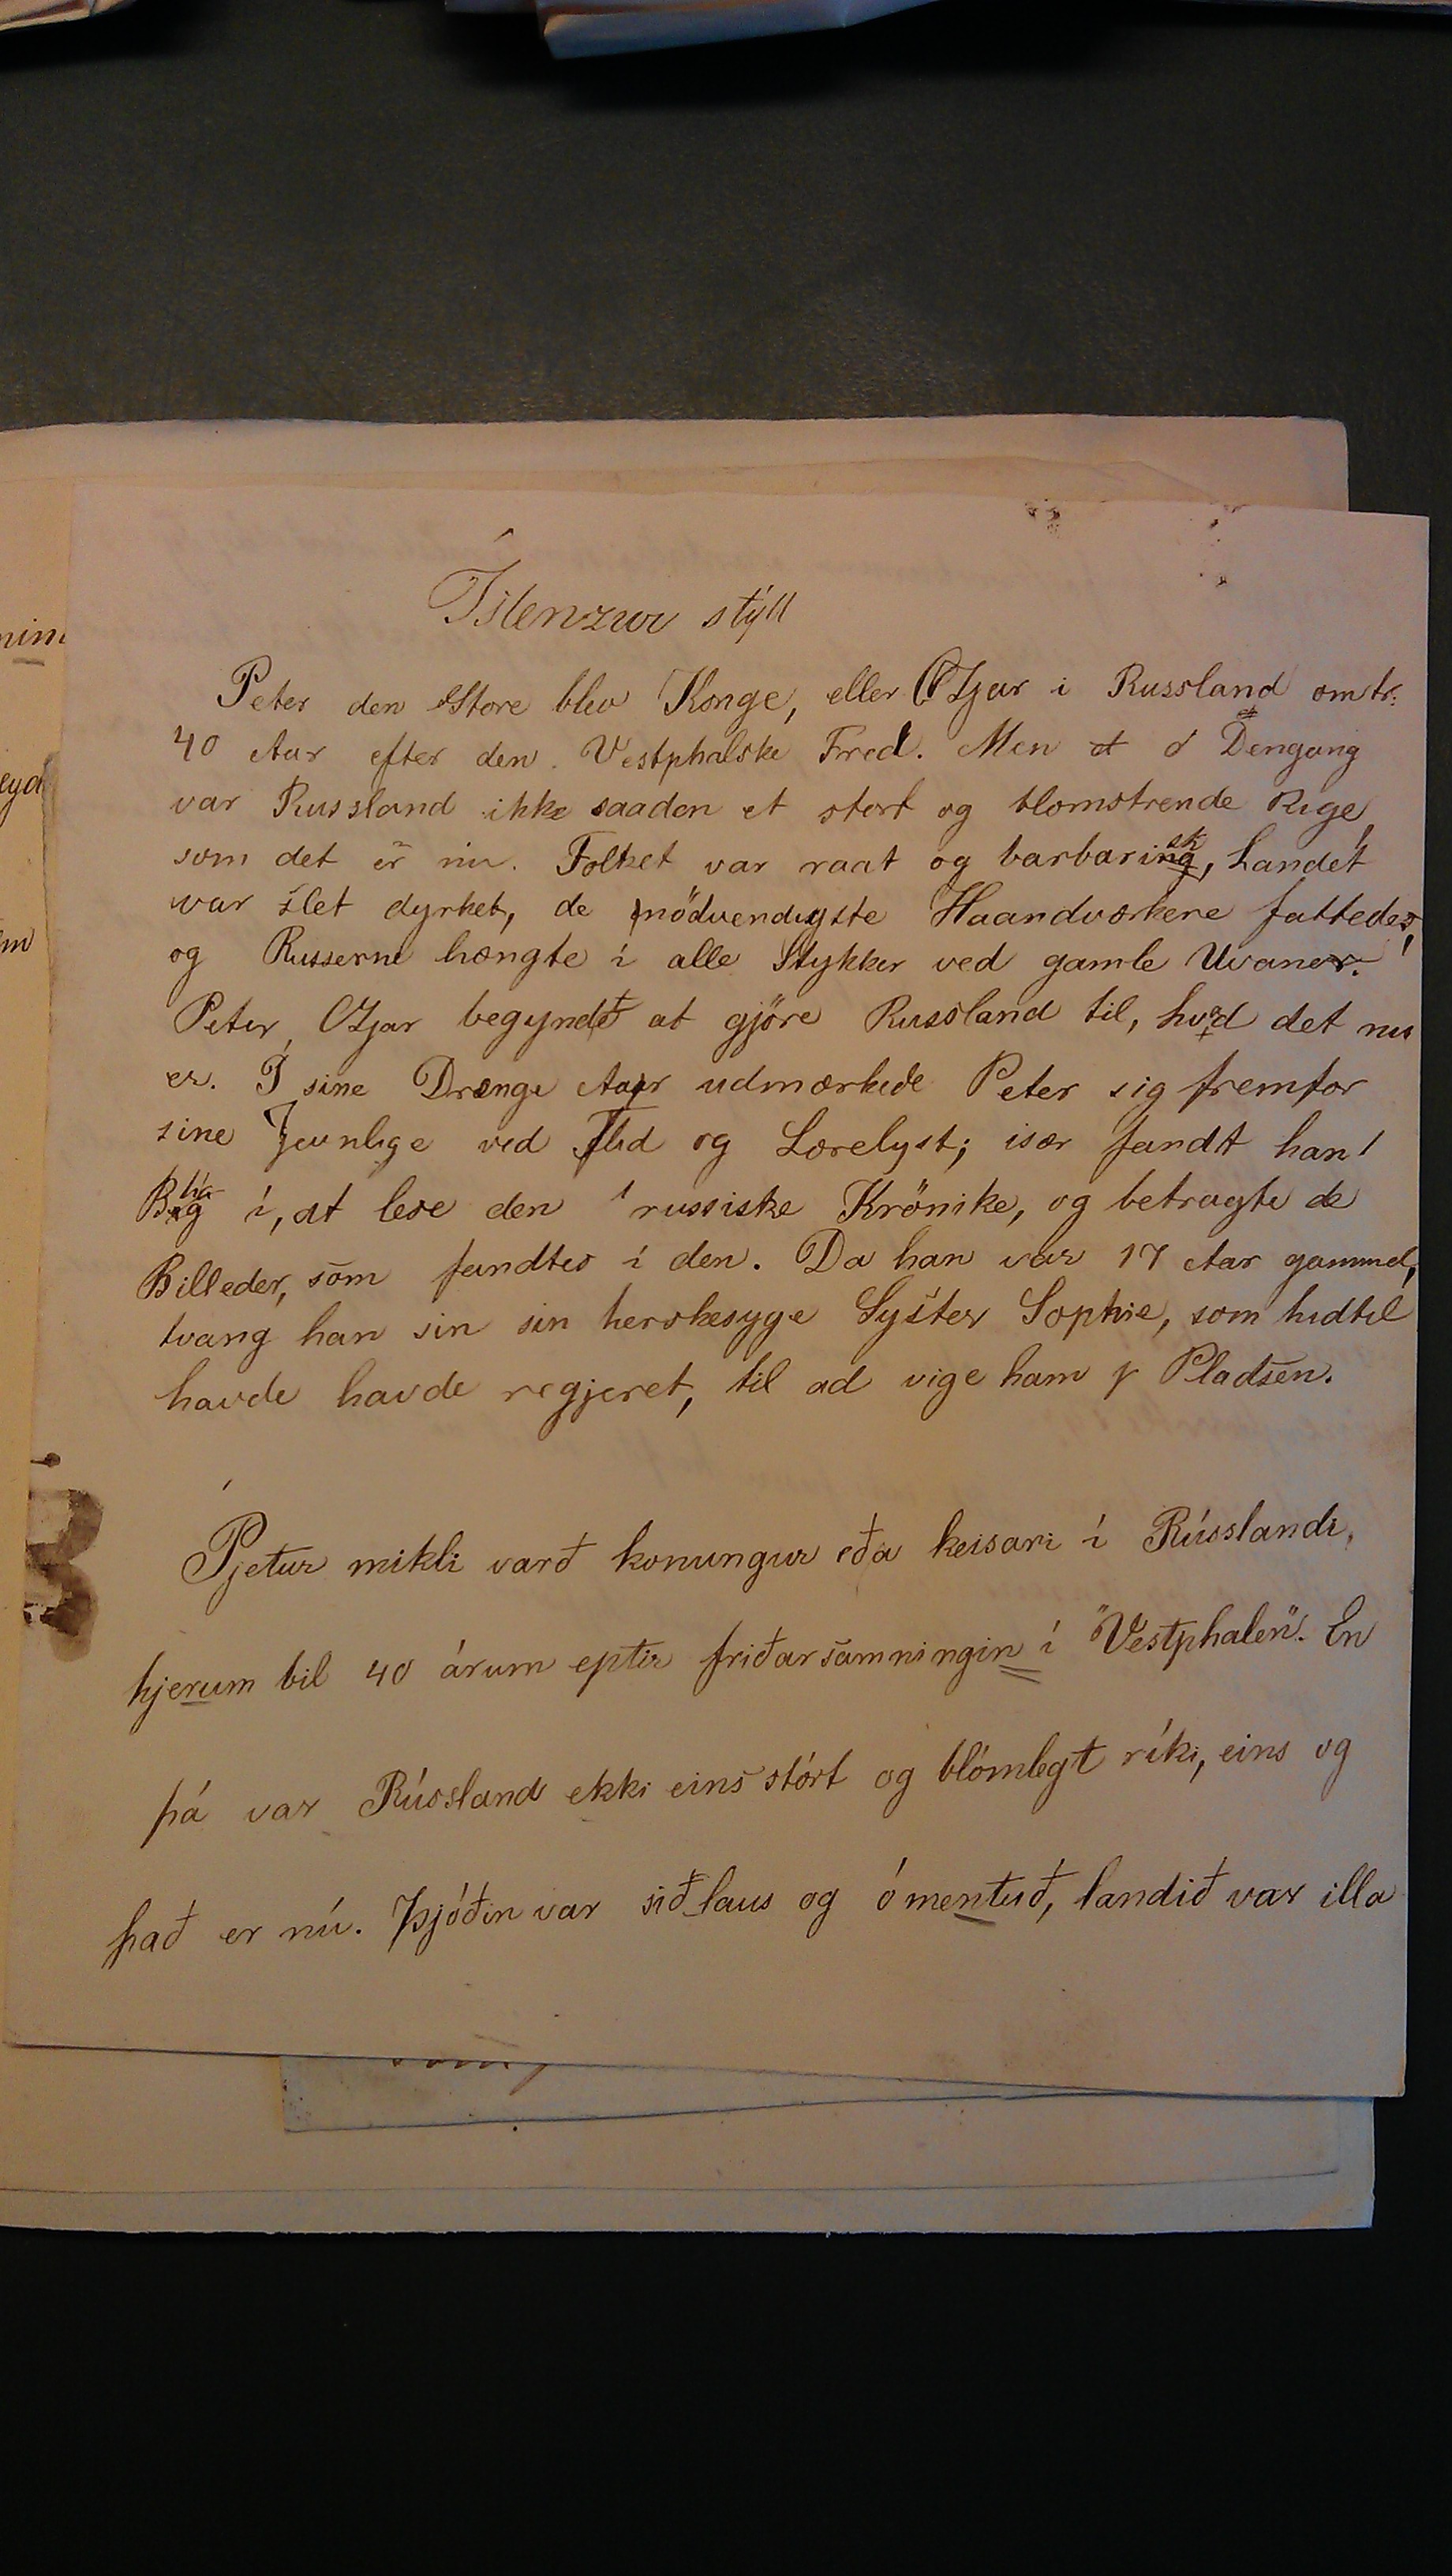 Íslenzur stýll
Peter den Store blev Konge, eller CZjar i Russland omtr.
40 Aar efter den Vestphalske Fred. Men Dengang
var Russland ikke saadan et stort og blomstrende Rige,
som det er nu. Folket var raat og barbarisk, Landet
var slet dyrket, de nödvendigste Haandværkere fattedes,
og Russerne hængte i alle Stykker ved gamle Uvaner.
Peter, CZjar begyndte at gjöre Russland til, hvad det nu
er. I sine Drænge Aar udmærkede Peter sig fremfor
sine Jevnlige ved Flid og Lærelyst; især fandt han
i, at lese den russiske Krönike, og betragte de
Billeder, som fandtes i den. Da han var 17 Aar gammel,
tvang han sin sin herskesyge Syster Sophie, som hidtil
havde havde regjeret, til ad vige ham Pladsen.
Pjetur mikli varð konungur eða keisari í Rússlandi,
hjerum bil 40 árum eptir friðarsamningin í "Vestphalen". En
þá var Rússland ekki eins stórt og blómlegt ríki, eins og
það er nú. Þjóðin var siðlaus og ómentuð, landið var illa